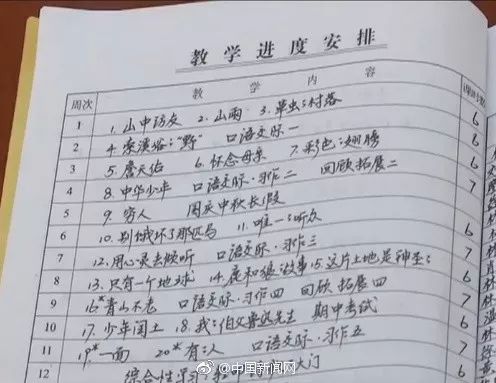 教学进度安排
周次 教学内容
1 1. 山中访友 2. 山雨 3. 草虫的村落 6
2 4. 索溪峪的“野” 口语交际一 8
3 5. 詹天佑 6. 怀念母亲 7. 彩色的翅膀 6
4 8. 中华少年 口语交际·习作二 回顾拓展二 7
5 9. 穷人 国庆中秋长假
6 10. 别饿坏了那匹马 11. 唯一的听众
7 12. 用心灵去倾听 口语交际·习作三
8 13. 只有一个地球 14. 鹿和狼的故事 15. 这片土地是神圣的
9 16* 青山不老 口语交际·习作四 回顾拓展四
10 17. 少年闰土 18. 我的伯父鲁迅先生 期中考试
11 19* 一面 20* 有的人 口语交际·习作五
12 综合性学习: 大门
@中国新闻网